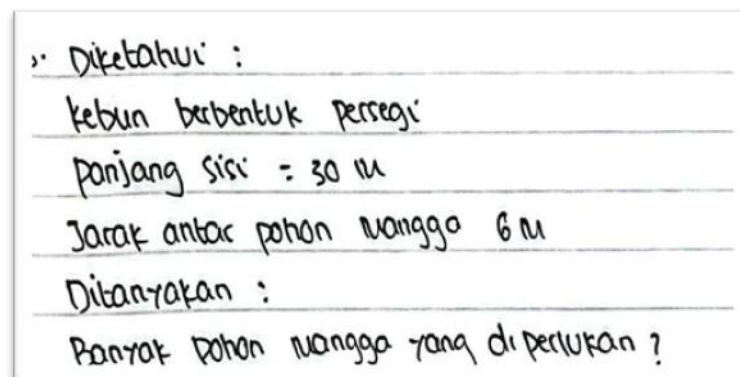 Diketahui :
kebun berbentuk persegi
panjang sisi = 30 m
Jarak antar pohon mangga 6 m
Ditanyakan :
Banyak pohon mangga yang diperlukan ?